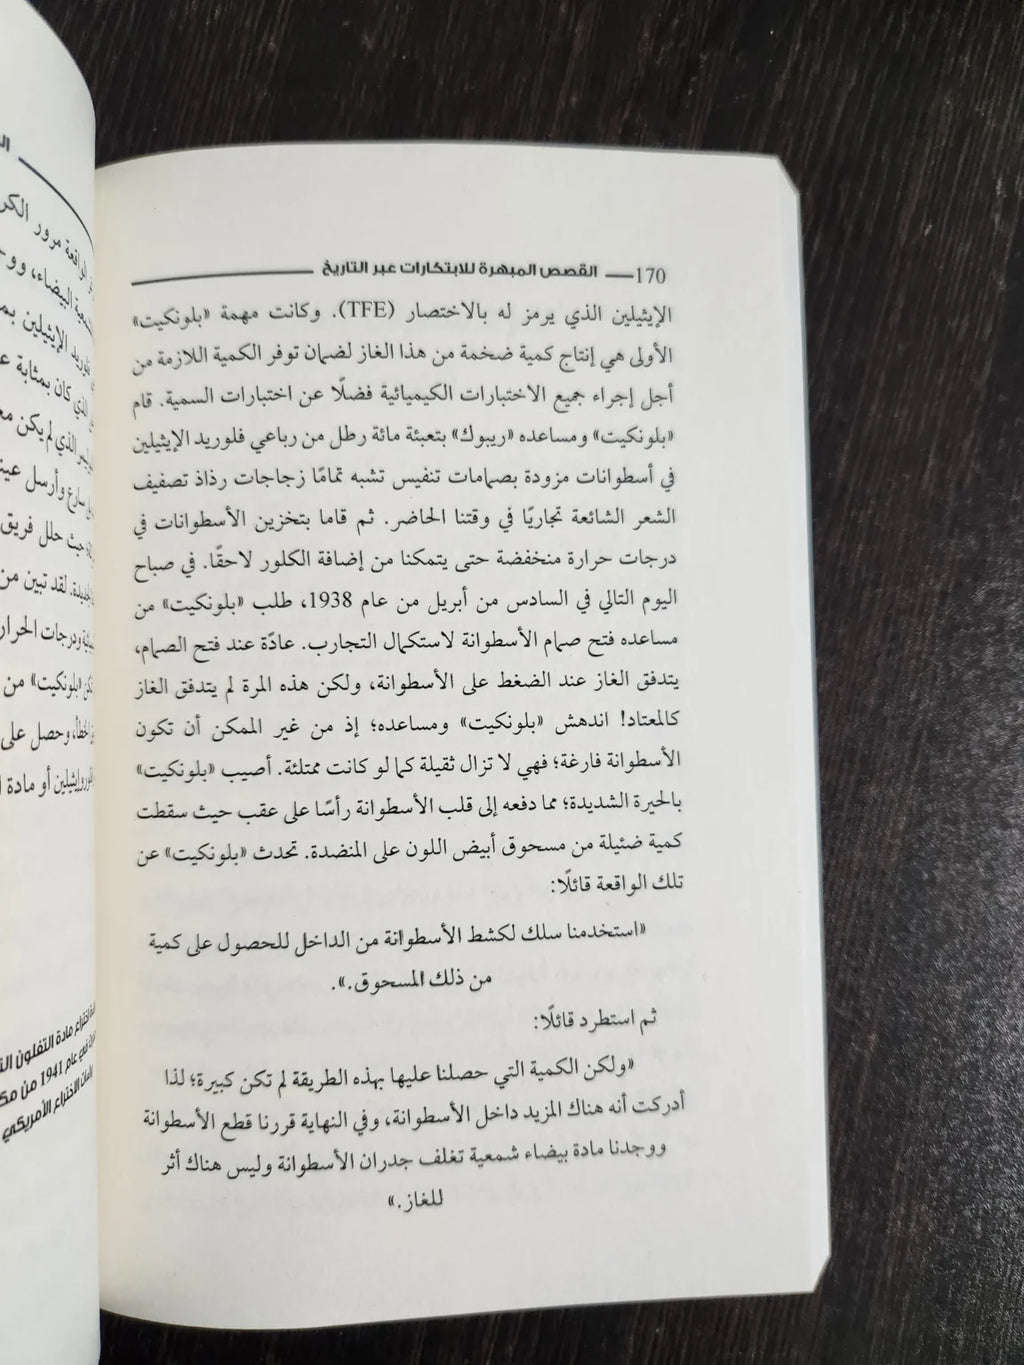 170 القصص المبهرة للابتكارات عبر التاريخ
الإيثيلين الذي يرمز له بالاختصار (TFE). وكانت مهمة «بلونكيت»
الأولى هي إنتاج كمية ضخمة من هذا الغاز لضمان توفر الكمية اللازمة من
أجل إجراء جميع الاختبارات الكيميائية فضلًا عن اختبارات السمية. قام
«بلونكيت» ومساعده «ريبوك» بتعبئة مائة رطل من رباعي فلوريد الإيثيلين
في أسطوانات مزودة بصمامات تنفيس تشبه تمامًا زجاجات رذاذ تصفيف
الشعر الشائعة تجاريًا في وقتنا الحاضر. ثم قاما بتخزين الأسطوانات في
درجات حرارة منخفضة حتى يتمكنا من إضافة الكلور لاحقًا. في صباح
اليوم التالي في السادس من أبريل من عام 1938، طلب «بلونكيت» من
مساعده فتح صمام الأسطوانة لاستكمال التجارب. عادًة عند فتح الصمام،
يتدفق الغاز عند الضغط على الأسطوانة، ولكن هذه المرة لم يتدفق الغاز
كالمعتاد! اندهش «بلونكيت» ومساعده؛ إذ من غير الممكن أن تكون
الأسطوانة فارغة؛ فهي لا تزال ثقيلة كما لو كانت ممتلئة. أصيب «بلونكيت»
بالحيرة الشديدة؛ مما دفعه إلى قلب الأسطوانة رأسًا على عقب حيث سقطت
كمية ضئيلة من مسحوق أبيض اللون على المنضدة. تحدث «بلونكيت» عن
تلك الواقعة قائلًا:
«استخدمنا سلك لكشط الأسطوانة من الداخل للحصول على كمية
من ذلك المسحوق.».
ثم استطرد قائلًا:
«ولكن الكمية التي حصلنا عليها بهذه الطريقة لم تكن كبيرة؛ لذا
أدركت أنه هناك المزيد داخل الأسطوانة، وفي النهاية قررنا قطع الأسطوانة
ووجدنا مادة بيضاء شمعية تغلف جدران الأسطوانة وليس هناك أثر
للغاز.»
الواقعة مرور
البيضاء،
الإيثيلين
الذي كان بمثابة
الذي لم يكن
سارع وأرسل
حيث حلل فريق
لقد تبين من
ودرجات
«بلونكيت» من
وحصل على
أو مادة
مادة التفلون
عام 1941 من
الاختراع الأمريكي